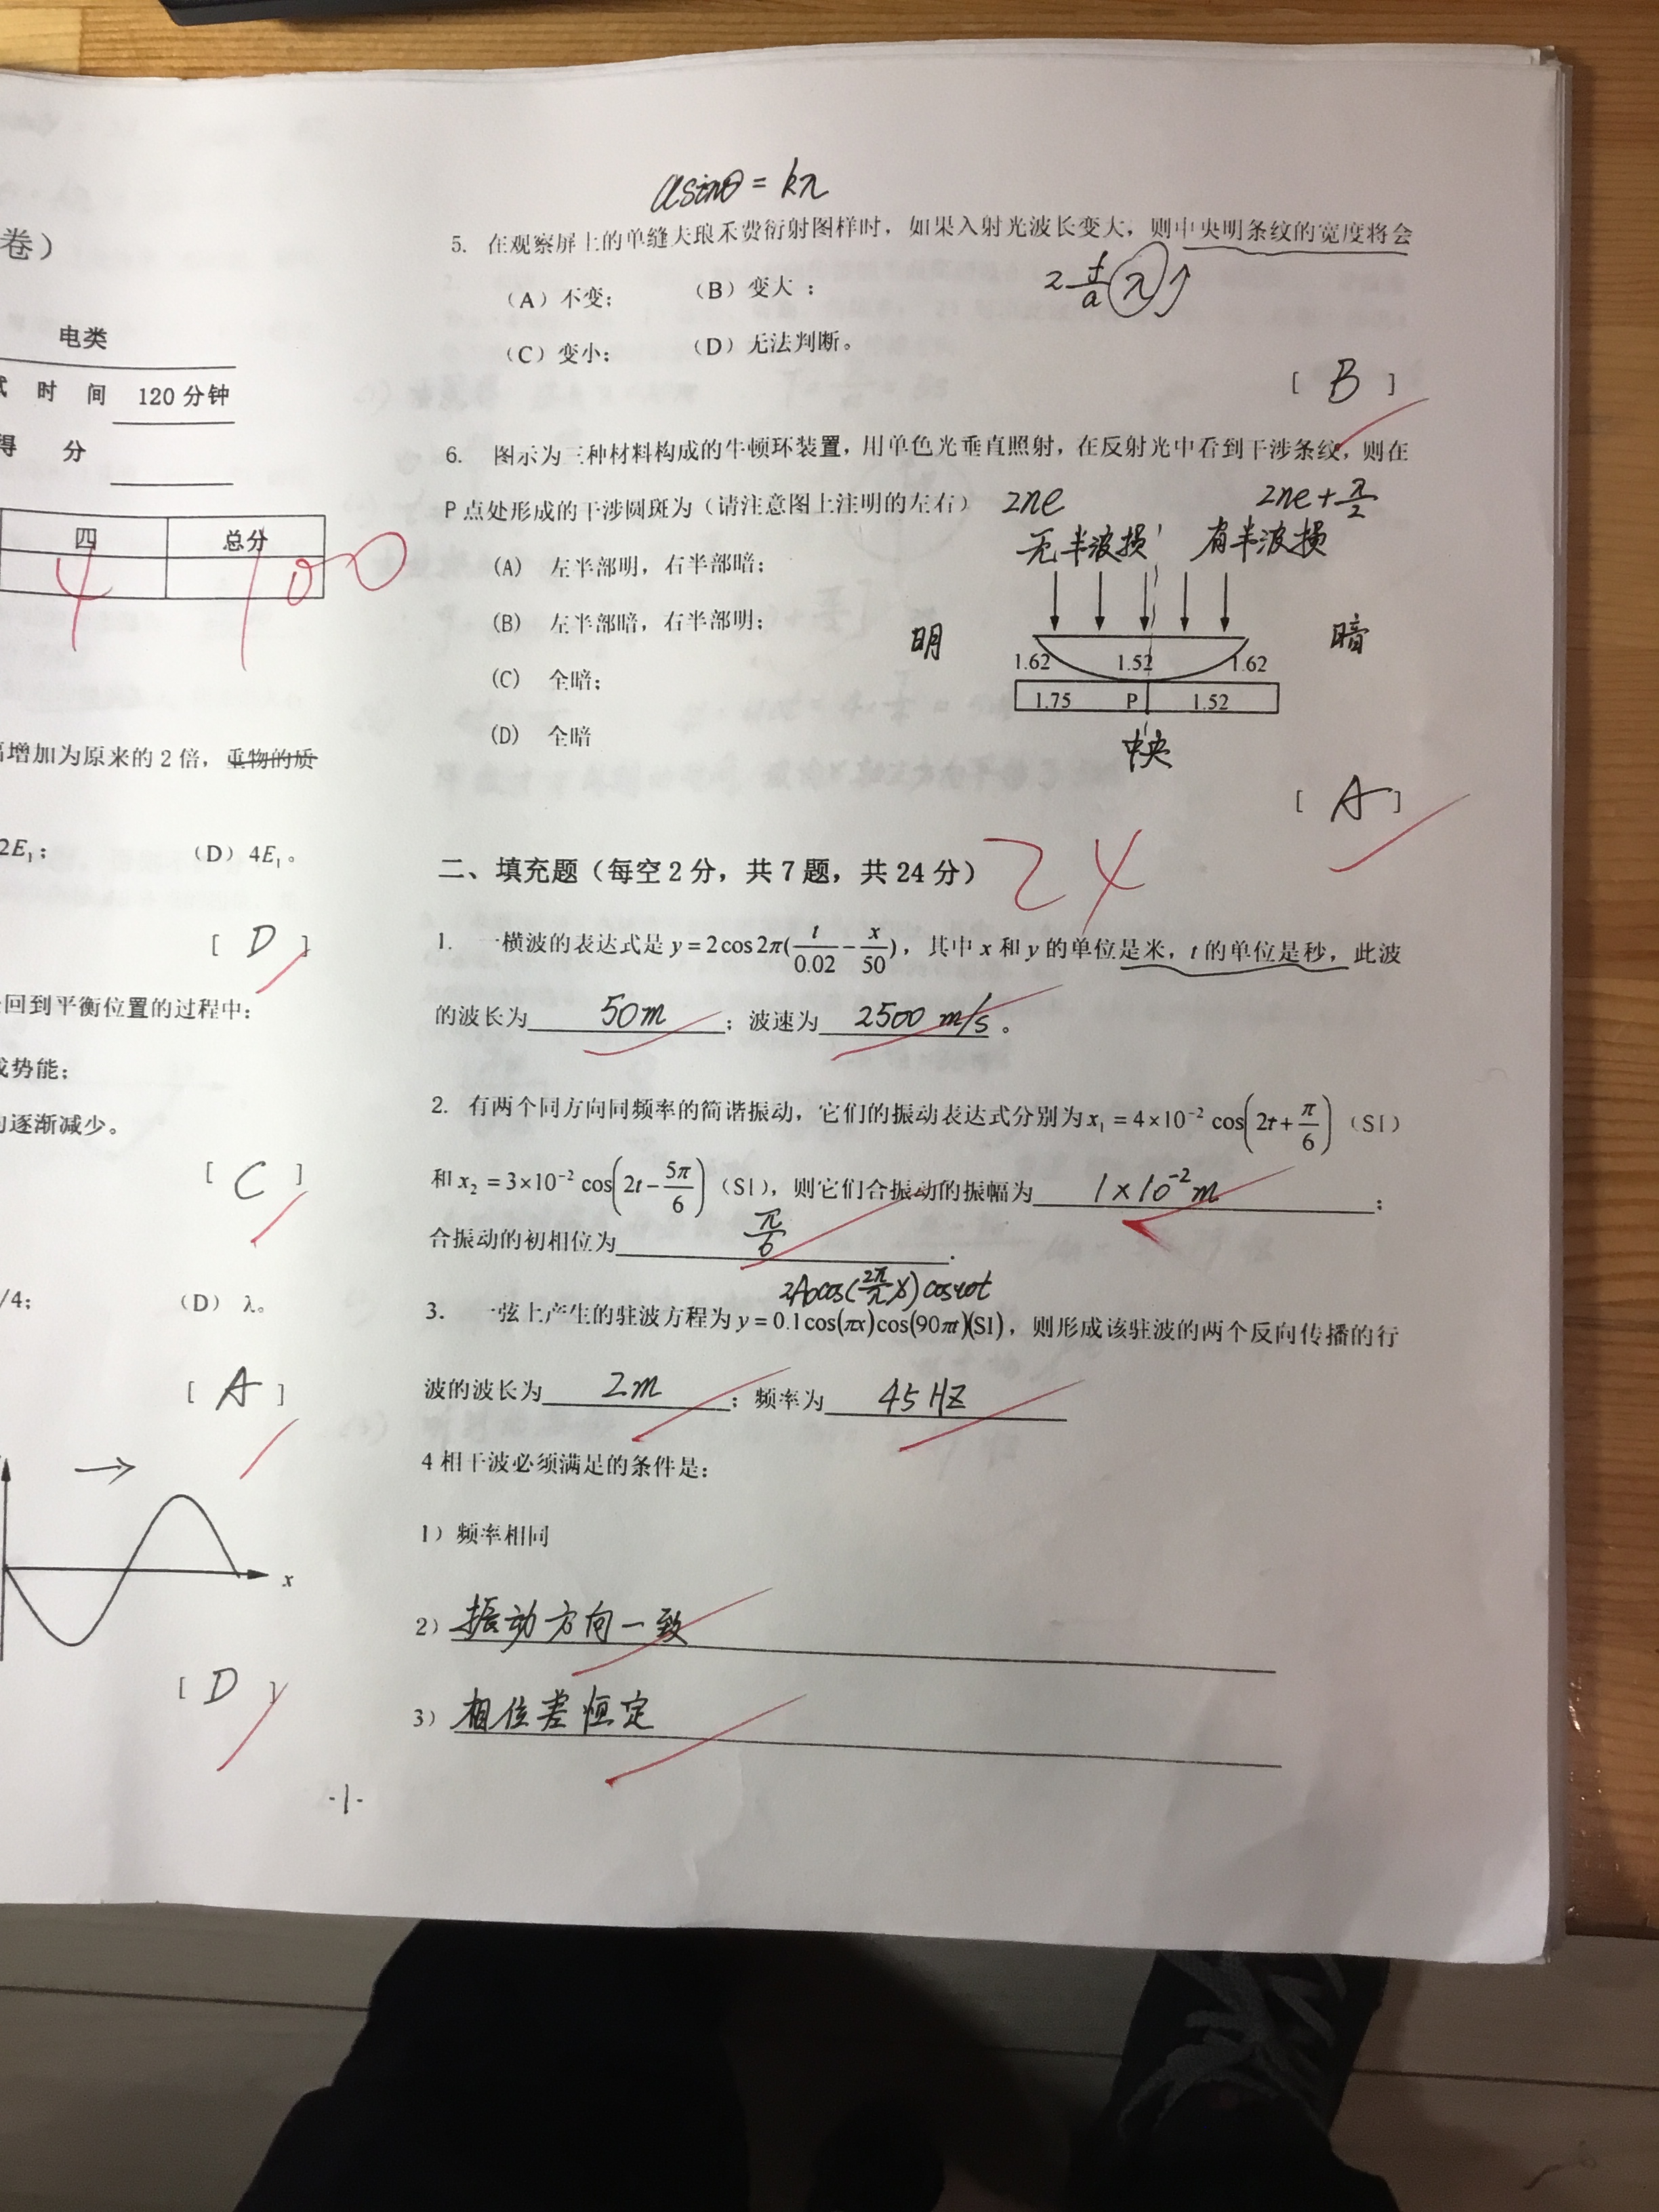 卷）
电类
时 间 120分钟
得 分
四 总分
4 100
幅增加为原来的2倍，重物的质
2E₁； （D）4E₁。
[ D ]
回到平衡位置的过程中：
成势能；
逐渐减少。
[ C ]
/4； （D）λ。
[ A ]
x
[ D ]
-1-
asinθ = kλ
5. 在观察屏上的单缝夫琅禾费衍射图样时，如果入射光波长变大，则中央明条纹的宽度将会
（A）不变； （B）变大；
2 f/a λ↑
（C）变小； （D）无法判断。
[ B ]
6. 图示为三种材料构成的牛顿环装置，用单色光垂直照射，在反射光中看到干涉条纹，则在
P点处形成的干涉圆斑为（请注意图上注明的左右）
2ne 2ne+λ/2
无半波损 有半波损
(A) 左半部明，右半部暗；
(B) 左半部暗，右半部明；
明 暗
1.62 1.52 1.62
(C) 全暗；
1.75 P 1.52
(D) 全暗
中央
[ A ]
二、填充题（每空2分，共7题，共24分） 24
1. 一横波的表达式是 y=2cos2π(t/0.02−x/50)，其中 x 和 y 的单位是米，t 的单位是秒，此波
的波长为 50m ；波速为 2500 m/s 。
2. 有两个同方向同频率的简谐振动，它们的振动表达式分别为 x₁=4×10⁻² cos(2t+π/6)（SI）
和 x₂=3×10⁻² cos(2t−5π/6)（SI），则它们合振动的振幅为 1×10⁻²m ；
合振动的初相位为 π/6 .
2A₀cos(2π/λ x)cosωt
3. 一弦上产生的驻波方程为 y=0.1cos(πx)cos(90πt)(SI)，则形成该驻波的两个反向传播的行
波的波长为 2m ；频率为 45HZ
4 相干波必须满足的条件是：
1）频率相同
2）振动方向一致
3）相位差恒定